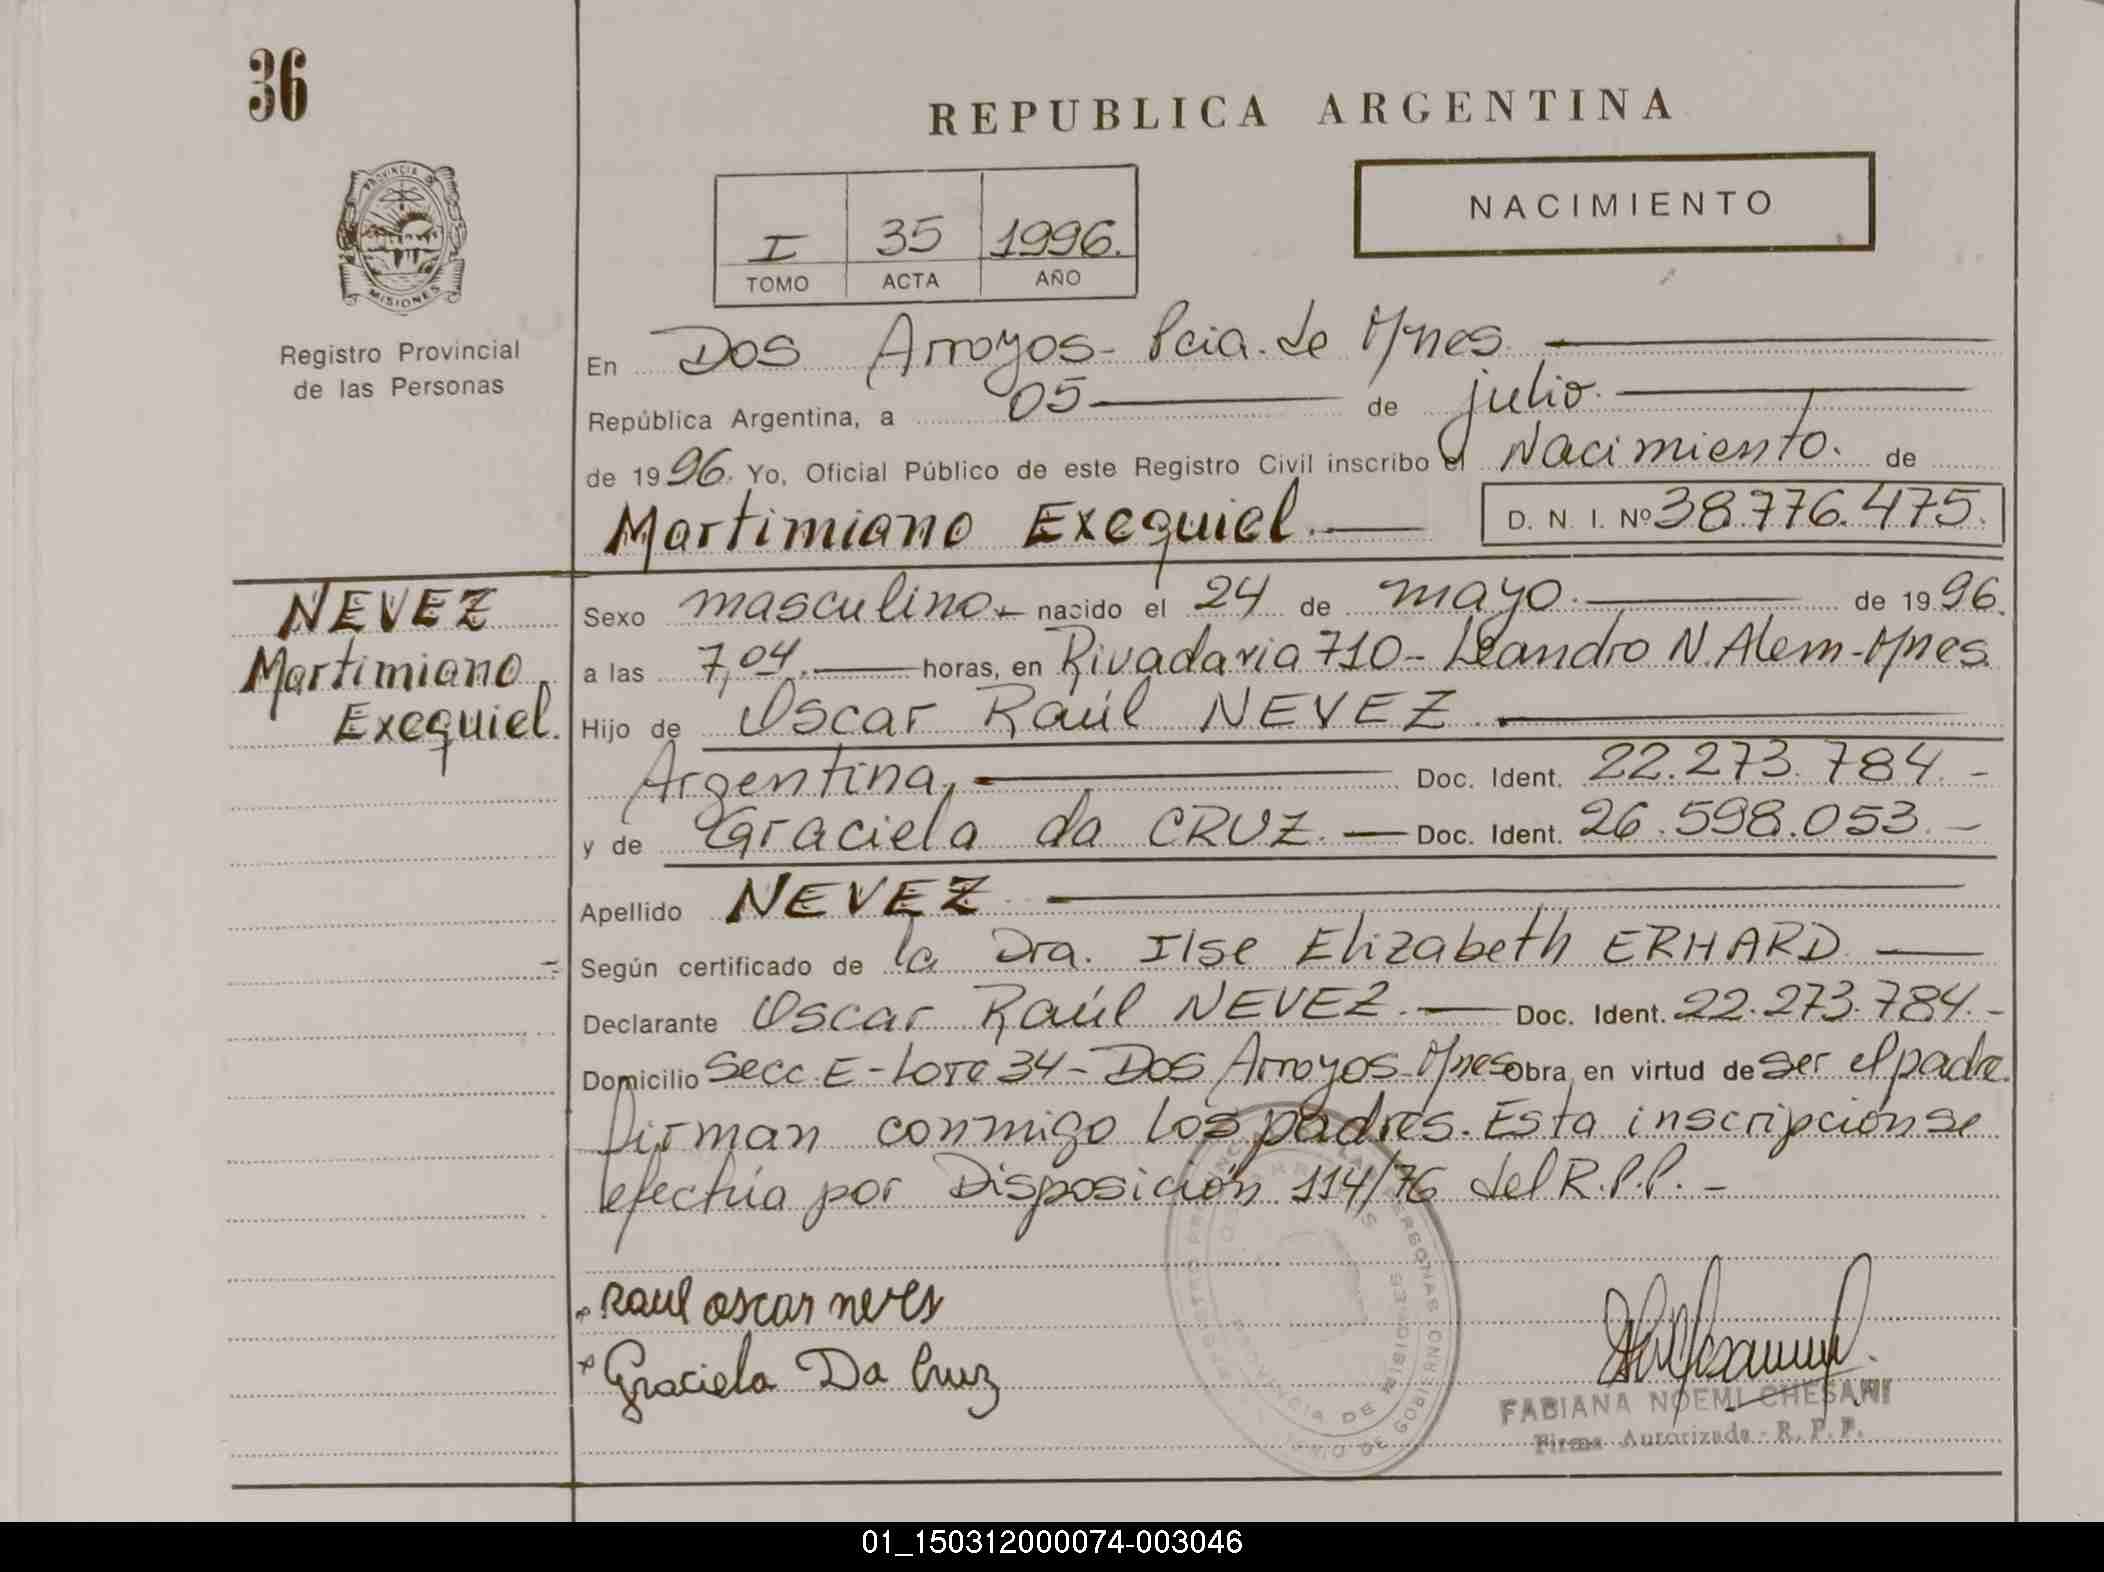 36
REPUBLICA ARGENTINA
NACIMIENTO
I 35 1996.
TOMO ACTA AÑO
PROVINCIA DE MISIONES
Registro Provincial
de las Personas
En Dos Arroyos - Pcia. de Mnes.
República Argentina, a 05 de julio.
de 1996. Yo, Oficial Público de este Registro Civil inscribo el Nacimiento. de
Martimiano Exequiel. D. N. I. Nº 38.776.475.
NEVEZ
Martimiano
Exequiel.
Sexo masculino nacido el 24 de mayo. de 1996.
a las 7,04. horas, en Rivadavia 710 - Leandro N. Alem - Mnes.
Hijo de Oscar Raúl NEVEZ
Argentina, Doc. Ident. 22.273.784. -
y de Graciela da CRUZ. Doc. Ident. 26.598.053. -
Apellido NEVEZ
Según certificado de la Dra. Ilse Elizabeth ERHARD
Declarante Oscar Raúl NEVEZ. Doc. Ident. 22.273.784. -
Domicilio Secc. E - Lote 34 - Dos Arroyos - Mnes Obra en virtud de ser el padre.
firman conmigo los padres. Esta inscripción se
efectúa por Disposición 114/76 del R.P.P. -
Raul oscar neves
Graciela Da Cruz
PROVINCIA DE MISIONES
FABIANA NOEMI CHESANI
Firma Autorizada - R. P. P.
01_150312000074-003046